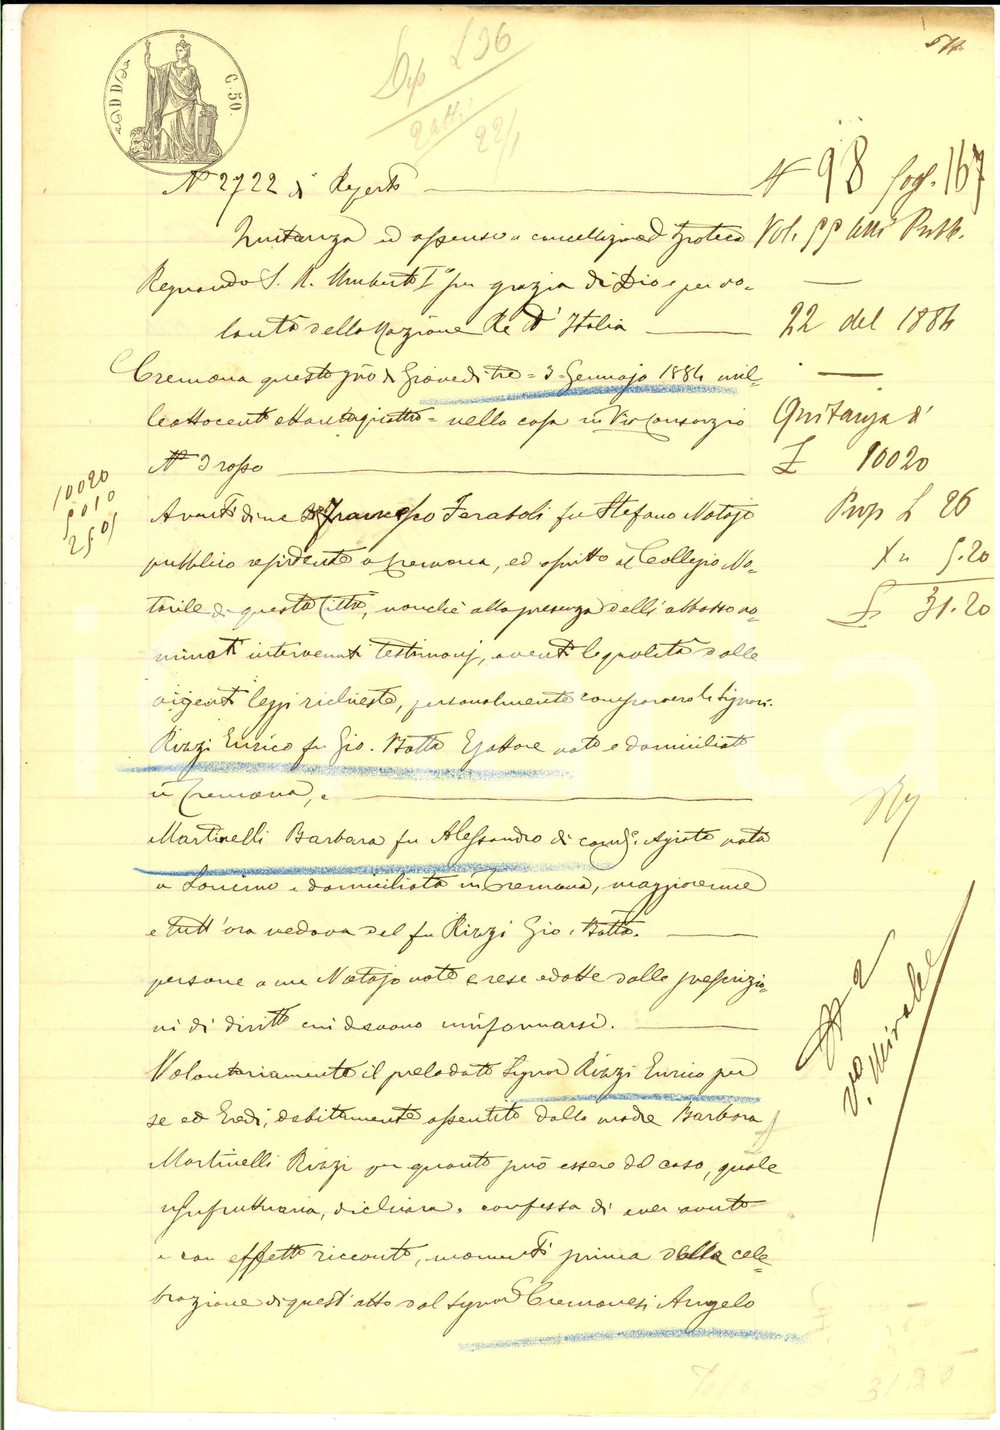 C. 50.
Dep £ 26
22/1
N° 2722 di Repert°
N° 98 fogl. 167
Quitanza ed assenso a cancellazione d'Ipoteca
Vol. 99 Atti Pubb.
Regnando S. M. Umberto I° per grazia di Dio e per vo-
lontà della Nazione Re d'Italia
22 del 1884
Cremona questo gno di Giovedì tre = 3 Gennajo 1884 mil-
leottocent'ottantaquattro = nella casa in Via Consorzio
N° 3 rosso
Quitanza di
£ 10020
10020
5010
2505
Avanti di me Dr Francesco Feraboli fu Stefano Notajo
pubblico residente a Cremona, ed ascritto al Collegio No-
tarile di questa Città, nonchè alla presenza delli abbasso no-
minati intervenuti testimonj, aventi le qualità dalle
vigenti leggi richieste, personalmente comparvero li Signori.
Prop £ 26
5.20
£ 31.20
Rizzi Enrico fu Gio. Batta Esattore nato e domiciliato
in Cremona, e
Martinelli Barbara fu Alessandro di condne agiata nata
a Soncino e domiciliata in Cremona, maggiorenne
e tutt'ora vedova del fu Rizzi Gio. Batta.
persone a me Notajo note e rese edotte dalle prescrizio-
ni di diritto cui devono uniformarsi.
Volontariamente il prelodato Signor Rizzi Enrico per
se ed Eredi, debitamente assentito dalla madre Barbara
Martinelli Rizzi per quanto può essere del caso, quale
usufruttuaria, dichiara e confessa di aver avuto
e con effetto ricevuto, momenti prima della cele-
brazione di quest'atto dal Signor Cremonesi Angelo
N° 2
31 20